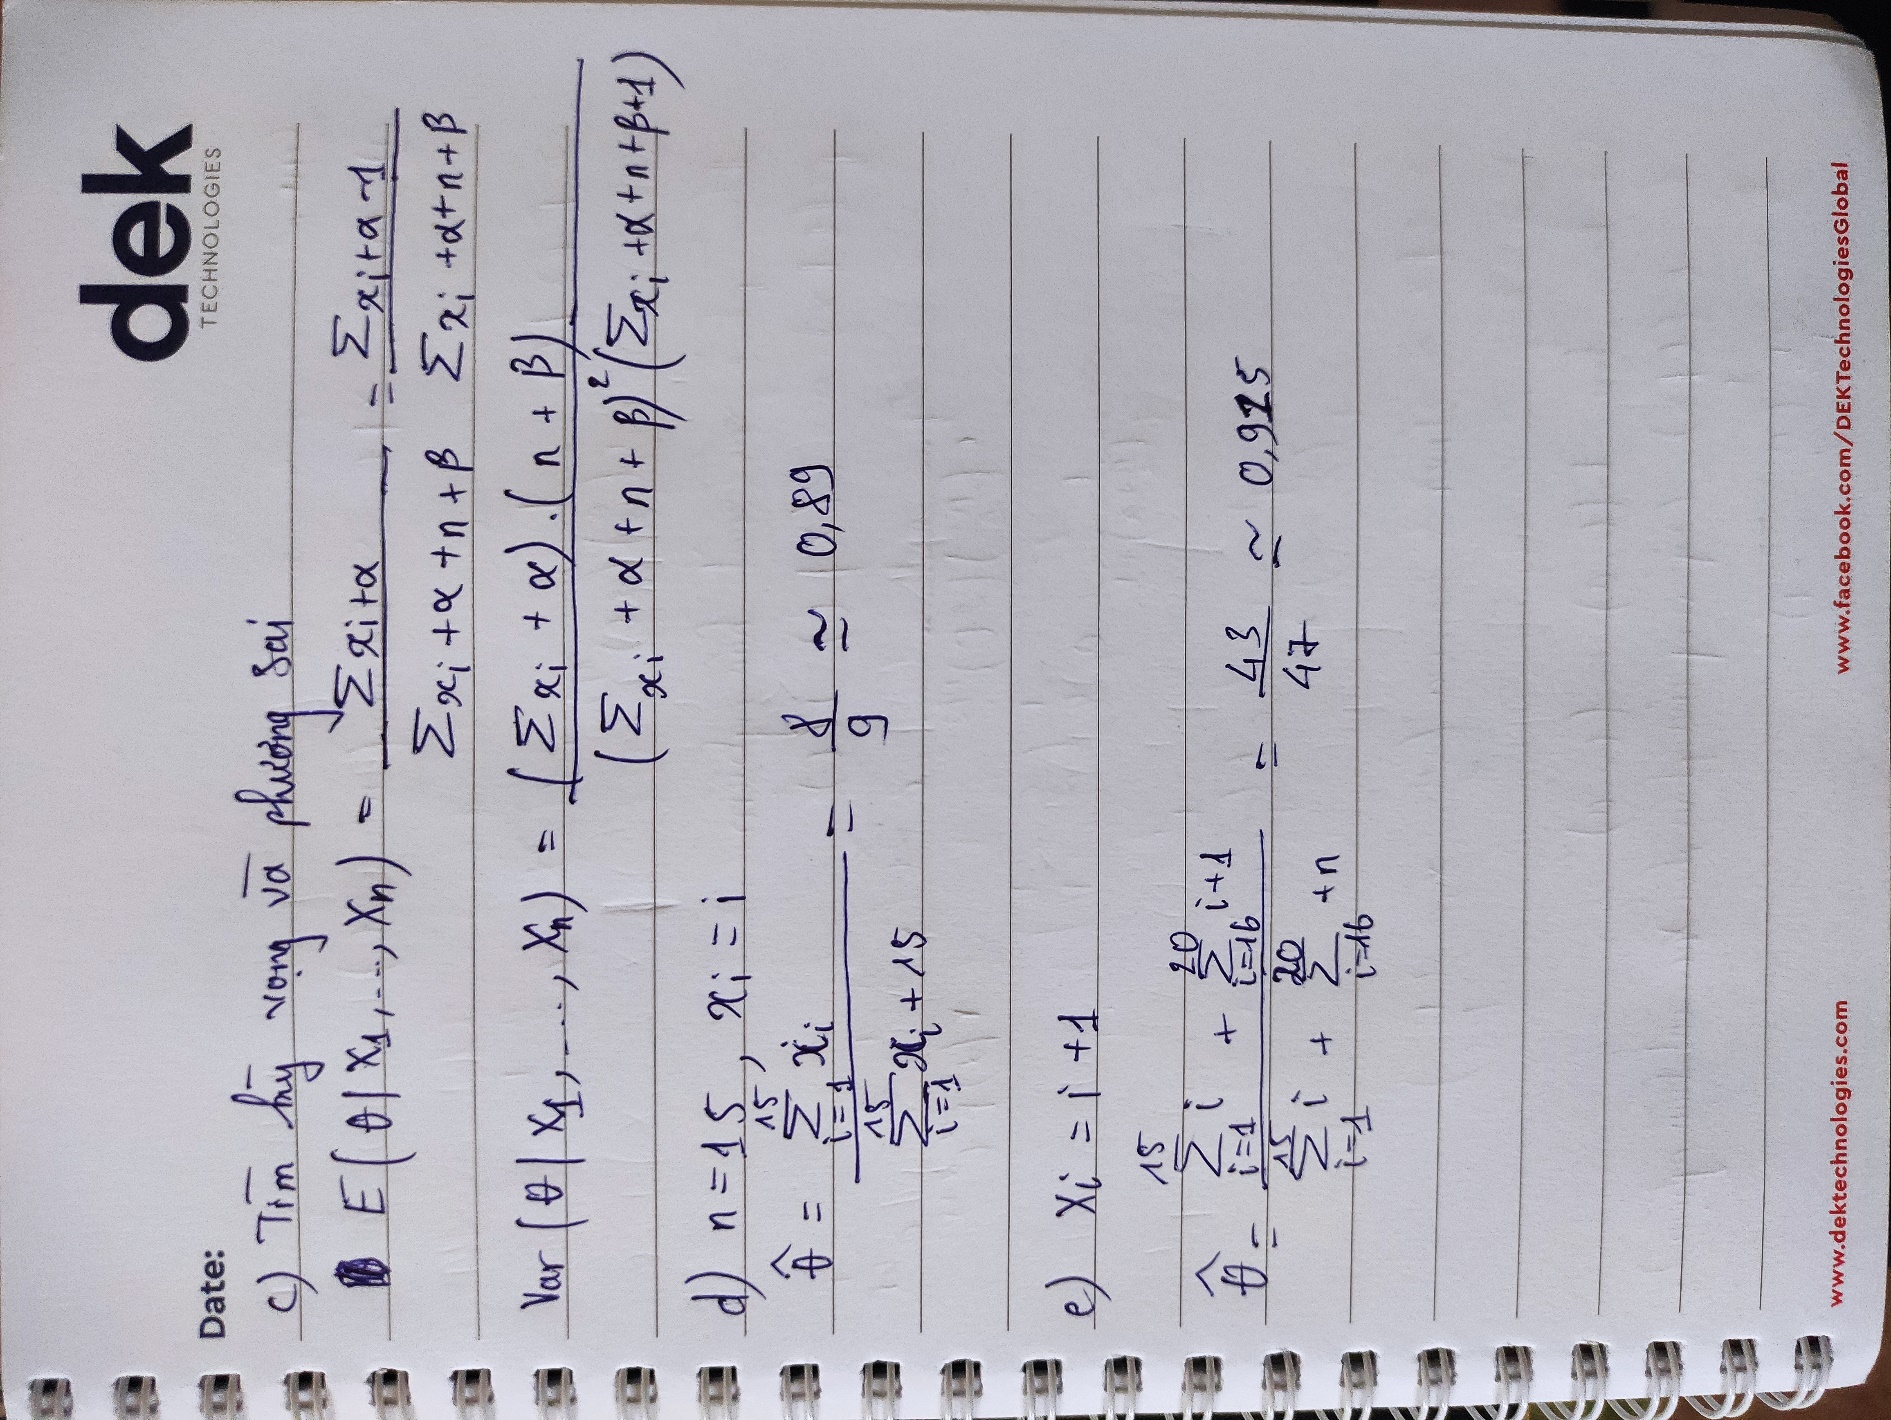 dek
TECHNOLOGIES
Date:
c) Tìm kỳ vọng và phương sai
E(θ|X1,...,Xn) = Σxi+α / Σxi+α+n+β = Σxi+α-1 / Σxi+α+n+β
Var(θ|X1,...,Xn) = (Σxi+α).(n+β) / (Σxi+α+n+β)²(Σxi+α+n+β+1)
d) n=15, xi=i
θ̂ = Σ_{i=1}^{15} xi / Σ_{i=1}^{15} xi+15 = 8/9 ≃ 0,89
e) Xi = i+1
θ̂ = Σ_{i=1}^{15} i + Σ_{i=16}^{20} i+1 / Σ_{i=1}^{15} i + Σ_{i=16}^{20} +n = 43/47 ≃ 0,915
www.dektechnologies.com
www.facebook.com/DEKTechnologiesGlobal